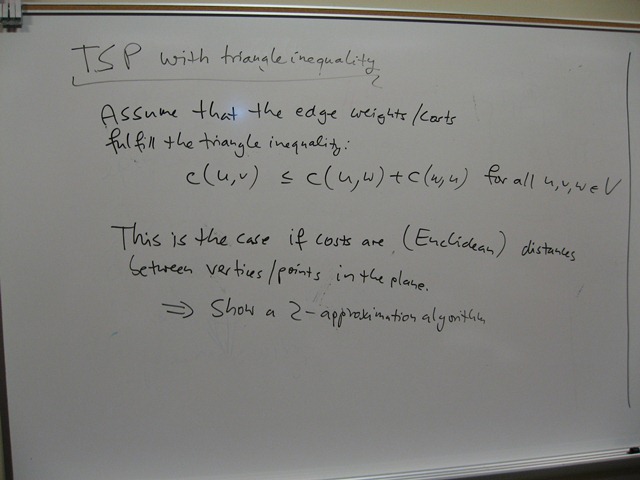 TSP with triangle inequality
Assume that the edge weights/costs
fulfill the triangle inequality:
c(u,v) ≤ c(u,w)+c(w,u) for all u,v,w ∈ V
This is the case if costs are (Euclidean) distances
between vertices/points in the plane.
⇒ Show a 2-approximation algorithm